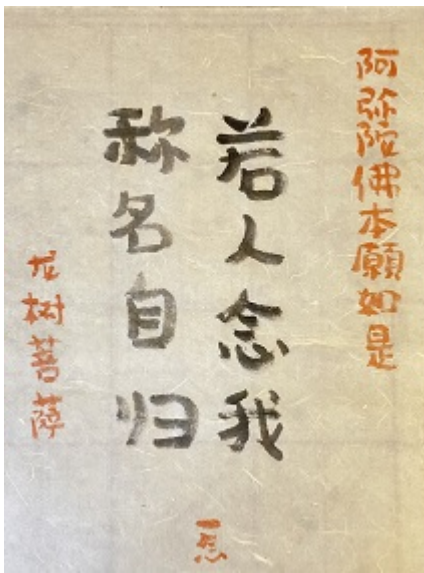 阿弥陀佛本願如是
若人念我
称名自归
龙树菩萨